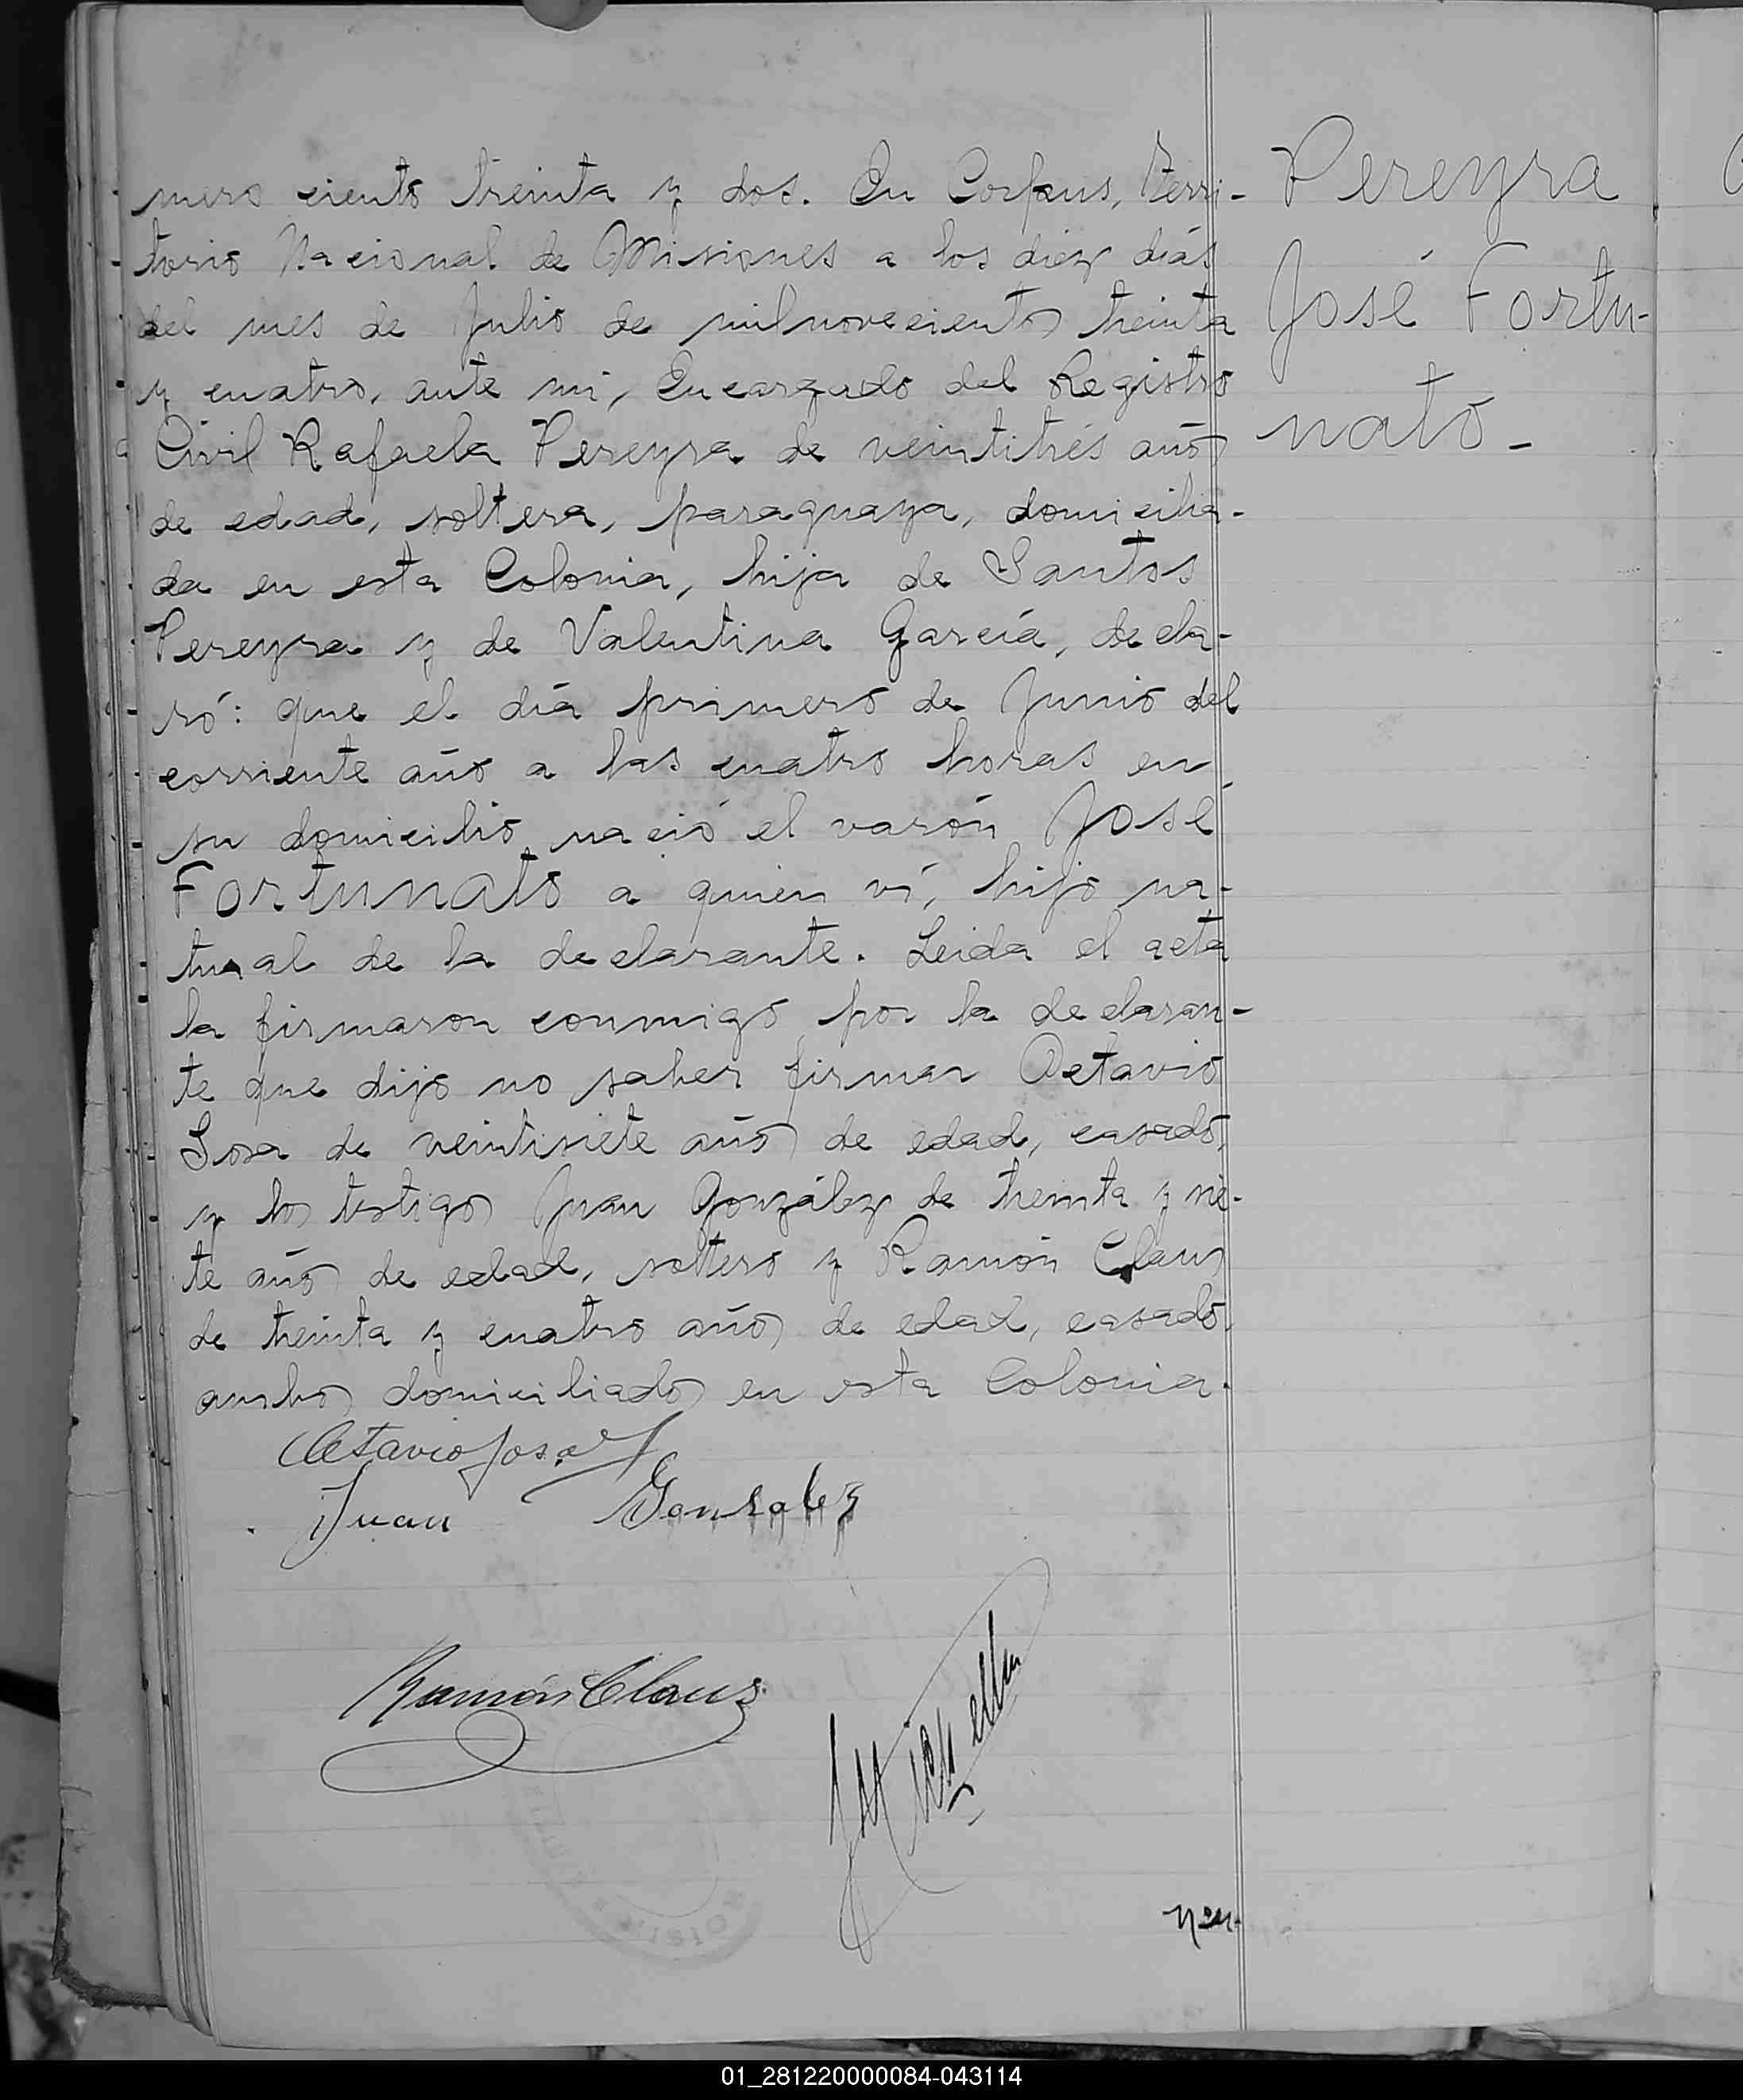 mero ciento treinta y dos. En Corpus, Terri-
torio Nacional de Misiones a los diez días
del mes de Julio de milnovecientos treinta
y cuatro, ante mi, Encargado del Registro
Civil Rafaela Pereyra de veintitrés años
de edad, soltera, paraguaya, domicilia-
da en esta Colonia, hija de Santos
Pereyra y de Valentina García, decla-
ró: que el día primero de Junio del
corriente año a las cuatro horas en
su domicilio nació el varón José
Fortunato a quien ví, hijo na-
tural de la declarante. Leida el acta
la firmaron conmigo por la declaran-
te que dijo no saber firmar Octavio
Sosa de veintisiete años de edad, casado,
y los testigos Juan González de treinta y sie-
te años de edad, soltero y Ramón Claus
de treinta y cuatro años de edad, casado,
ambos domiciliados en esta Colonia.
Octavio Sosa
Juan Gonzalez
Ramón Claus
Pereyra
José Fortu-
nato-
01_281220000084-043114